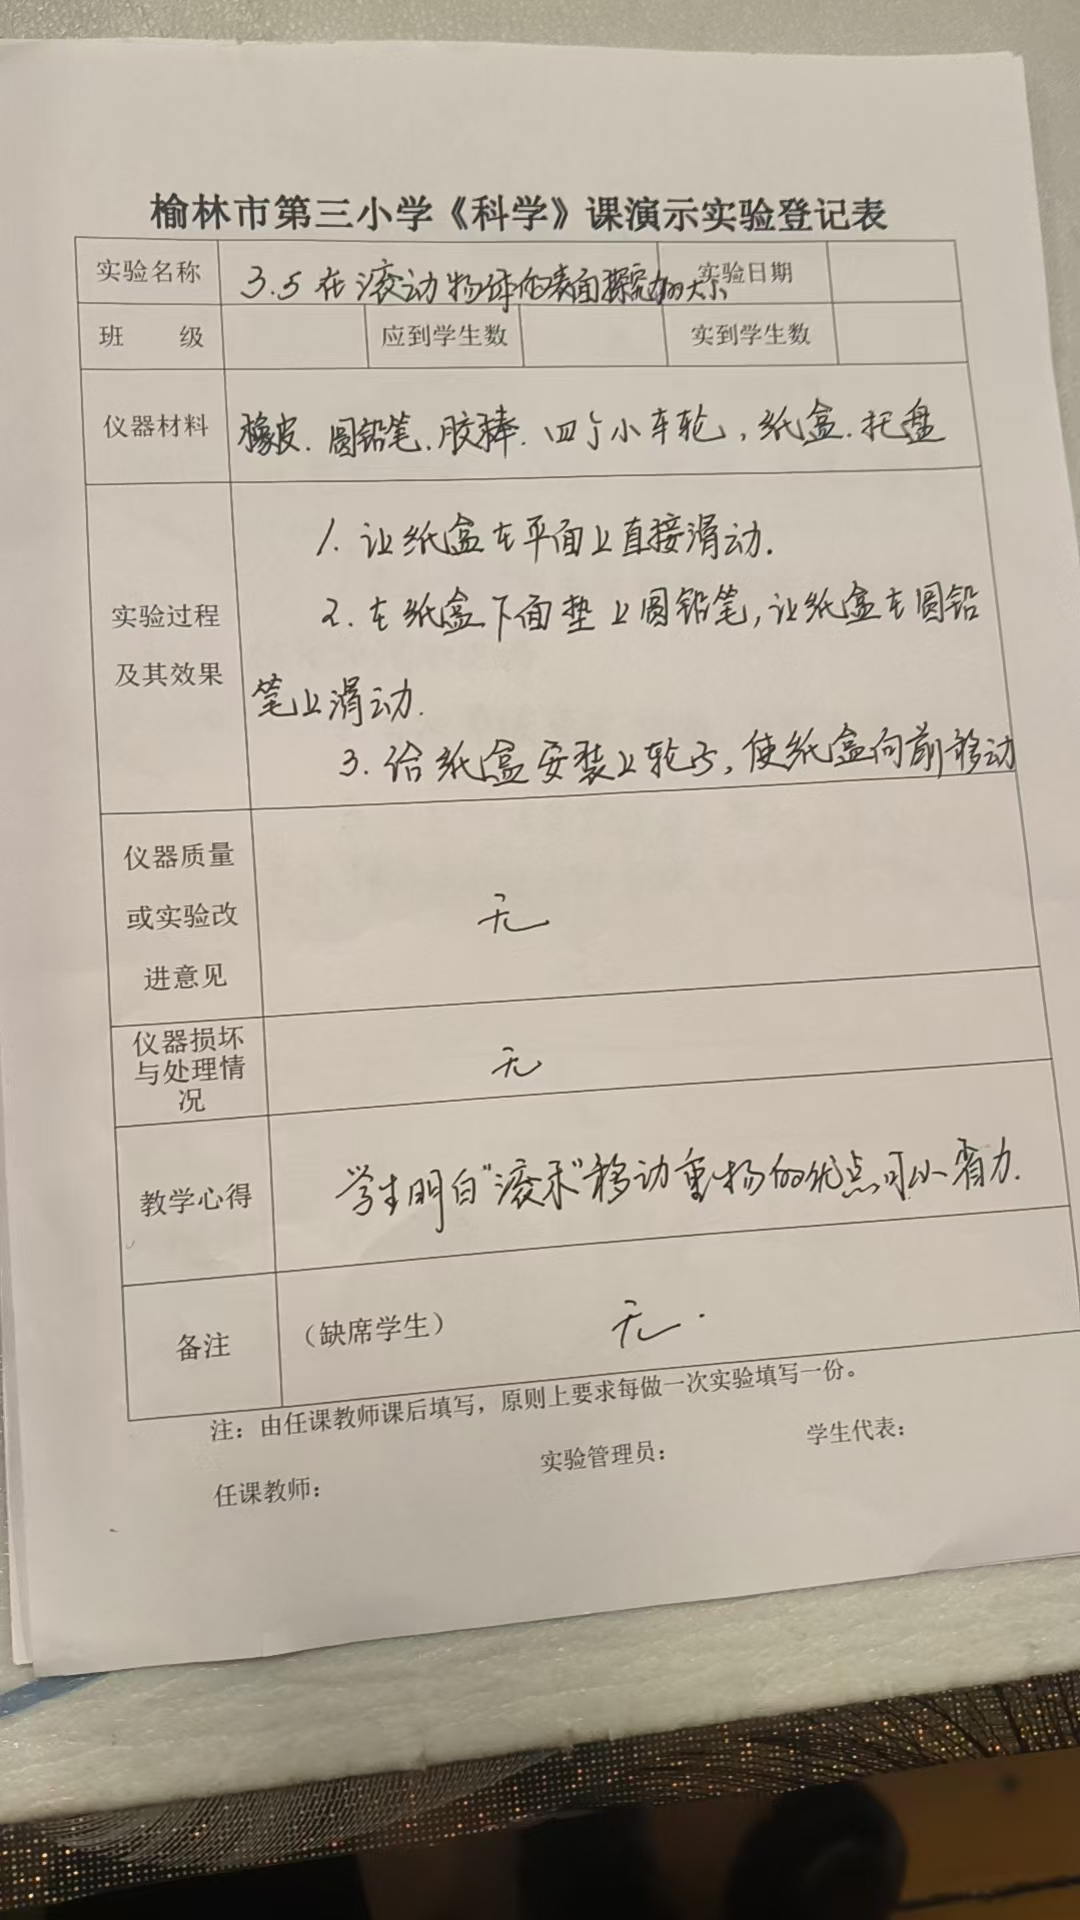 榆林市第三小学《科学》课演示实验登记表
实验名称 3.5 在滚动物体的表面探究力的大小 实验日期
班 级 应到学生数 实到学生数
仪器材料 橡皮. 圆铅笔. 胶棒. 四个小车轮, 纸盒. 托盘
1. 让纸盒在平面上直接滑动.
2. 在纸盒下面垫上圆铅笔, 让纸盒在圆铅
实验过程
及其效果
笔上滑动.
3. 给纸盒安装上轮子, 使纸盒向前移动
仪器质量
或实验改
进意见
无
仪器损坏
与处理情
况
无
教学心得 学生明白“滚木”移动重物的优点可以省力.
备注 (缺席学生) 无.
注：由任课教师课后填写，原则上要求每做一次实验填写一份。
任课教师： 实验管理员： 学生代表：